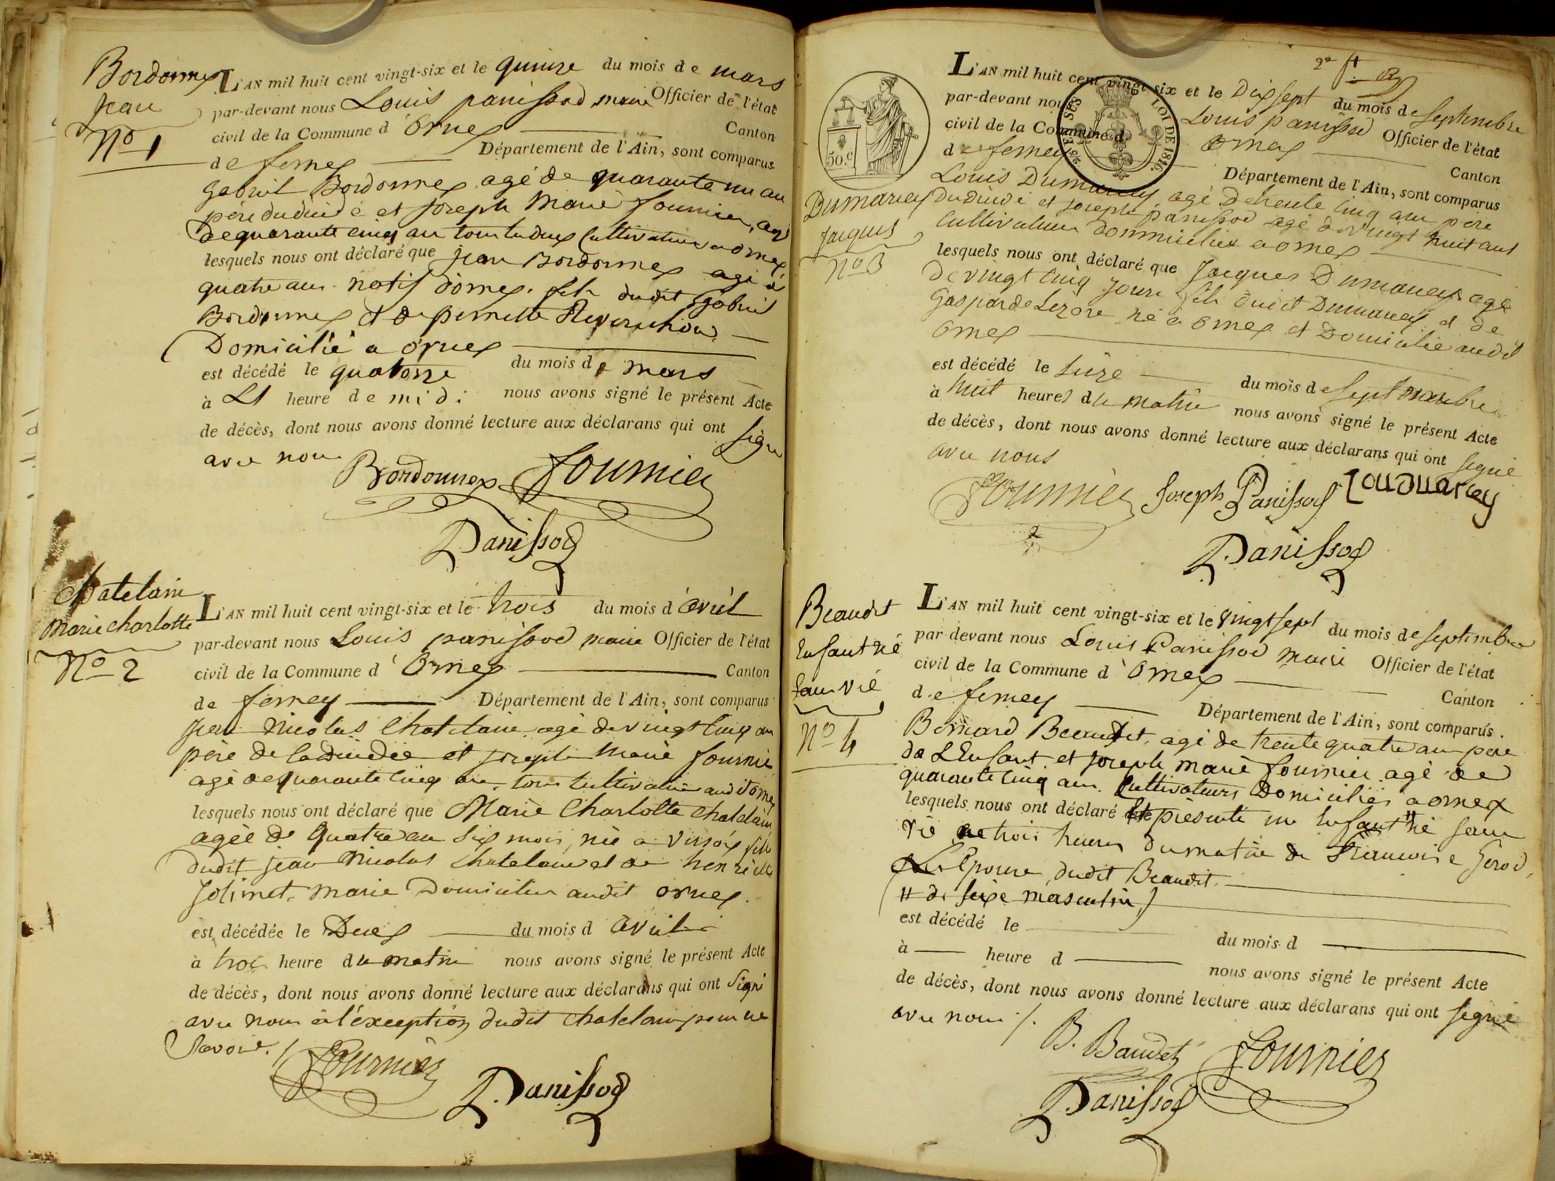 Bordonnex
Jean
No 1
L'AN mil huit cent vingt-six et le quinze du mois de mars
par-devant nous Louis panissod maire Officier de l'état
civil de la Commune d'Ornex Canton
de ferney Département de l'Ain, sont comparus
Gabriel Bordonnex agé de quarante un an
père dudécédé et Joseph Marie fournier, agé
de quarante cinq an tout ledeux Cultivateur a ornex
lesquels nous ont déclaré que jean Bordonnex agé de
quatre ans natif dornex fils dudit Gabriel
Bordonnex et de pernette
Domicilié a ornex
est décédé le quatorze du mois de mars
à heure de midi nous avons signé le présent Acte
de décès, dont nous avons donné lecture aux déclarans qui ont signé
avec nous
Bordonnex fournier
Panissod
Chatelain
Marie charlotte
No 2
L'AN mil huit cent vingt-six et le trois du mois d'avril
par-devant nous Louis panissod maire Officier de l'état
civil de la Commune d'Ornex Canton
de ferney Département de l'Ain, sont comparus
Jean Nicolas Chatelain agé de vingt cinq an
père de ladécédée et joseph Marie fournier
agé de quarante cinq an tous Cultivateur audit ornex
lesquels nous ont déclaré que Marie Charlotte Chatelain
agée de quatre an six mois, née a fille
dudit jean Nicolas Chatelain et de henriette
marie Domicilier audit ornex.
est décédée le Deux du mois d avril
à trois heure du matin nous avons signé le présent Acte
de décès, dont nous avons donné lecture aux déclarans qui ont signé
avec nous à l'exception dudit chatelain pour ne
Savoir.
fournier
Panissod
2e ft
50.c
LOI DE 1816.
Dumarey
Jacques
No 3
L'AN mil huit cent vingt-six et le Dixsept du mois de septembre
par-devant nous Louis panissod Officier de l'état
civil de la Commune d Ornex Canton
de ferney Département de l'Ain, sont comparus
Louis Dumarey, agé de trente cinq ans père
dudécédé et joseph panissod agé de vingt huit ans
Cultivateur domicilié a ornex
lesquels nous ont déclaré que Jacques Dumarey agé
de vingt cinq jours fils dudit Dumarey et de
Gasparde né à ornex et Domicilié audit
ornex
est décédé le seize du mois de septembre
à huit heures du matin nous avons signé le présent Acte
de décès, dont nous avons donné lecture aux déclarans qui ont signé
avec nous
fournier Joseph Panissod Loudumarey
Panissod
Beaudet
Enfant né
sans vie
No 4
L'AN mil huit cent vingt-six et le vingtsept du mois de septembre
par-devant nous Louis Panissod maire Officier de l'état
civil de la Commune d'Ornex Canton
de ferney Département de l'Ain, sont comparus.
Bernard Beaudet, agé de trente quatre an père
de l'Enfant et joseph marie fournier agé de
quarante cinq ans. Cultivateurs Domiciliés a ornex
lesquels nous ont déclaré présenté un Enfant né sans
vie a trois heures du matin de françoise
Epouse dudit Beaudit.
de sexe masculin
est décédé le du mois d
à heure d nous avons signé le présent Acte
de décès, dont nous avons donné lecture aux déclarans qui ont signé
avec nous
B. Baudet fournier
Panissod